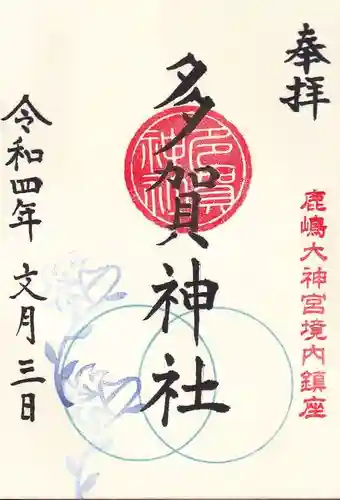 奉拝
鹿嶋大神宮境内鎮座
多賀神社
令和四年
文月三日